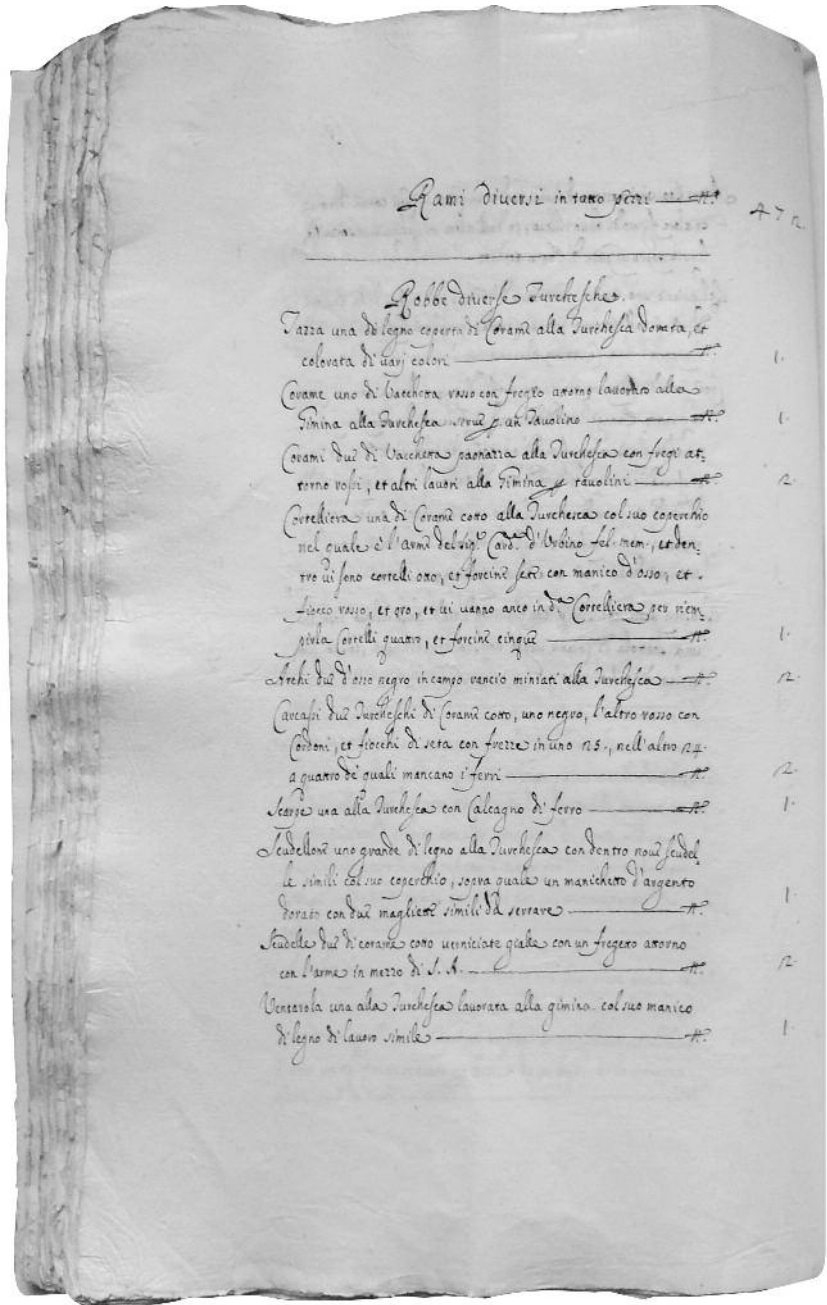 Rami diversi in tutto pezzi —— n.º 472
Robbe diverse Turchesche.
Tazza una di legno coperta di Corame alla Turchesca dorata, et
colorata di varj colori —— n.º 1.
Corame uno di Vacchetta rosso con fregio attorno lavorato alla
Gimina alla Turchesca serve p un Tavolino —— n.º 1.
Corami due di Vacchetta paonazza alla Turchesca con fregi at-
torno rossi, et altri lavori alla Gimina p tavolini —— n.º 2.
Cortelliera una di Corame cotto alla Turchesca col suo coperchio
nel quale è l'arme del sig.r Card.le d'Urbino fel. mem., et den-
tro vi sono cortelli otto, et forcine sette con manico d'osso, et
fiocco rosso, et oro, et vi vanno anco in d.a Cortelliera per riem-
pirla Cortelli quattro, et forcine cinque —— n.º 1.
Archi due d'osso negro in campo rancio miniati alla Turchesca —— n.º 2.
Carcassi due Turcheschi di Corame cotto, uno negro, l'altro rosso con
Cordoni, et fiocchi di seta con frezze in uno 25., nell'altro 24.
a quattro de quali mancano i ferri —— n.º 2.
Scarpe una alla Turchesca con Calcagno di ferro —— n.º 1.
Scudellone uno grande di legno alla Turchesca con dentro nove scudel-
le simili col suo coperchio, sopra quale un manichetto d'argento
dorato con due magliette simili da serrare —— n.º 1.
Scudelle due di corame cotto verniciate gialle con un fregetto attorno
con l'arme in mezzo di S. A. —— n.º 2.
Ventarola una alla Turchesca lavorata alla gimina col suo manico
di legno di lavoro simile —— n.º 1.